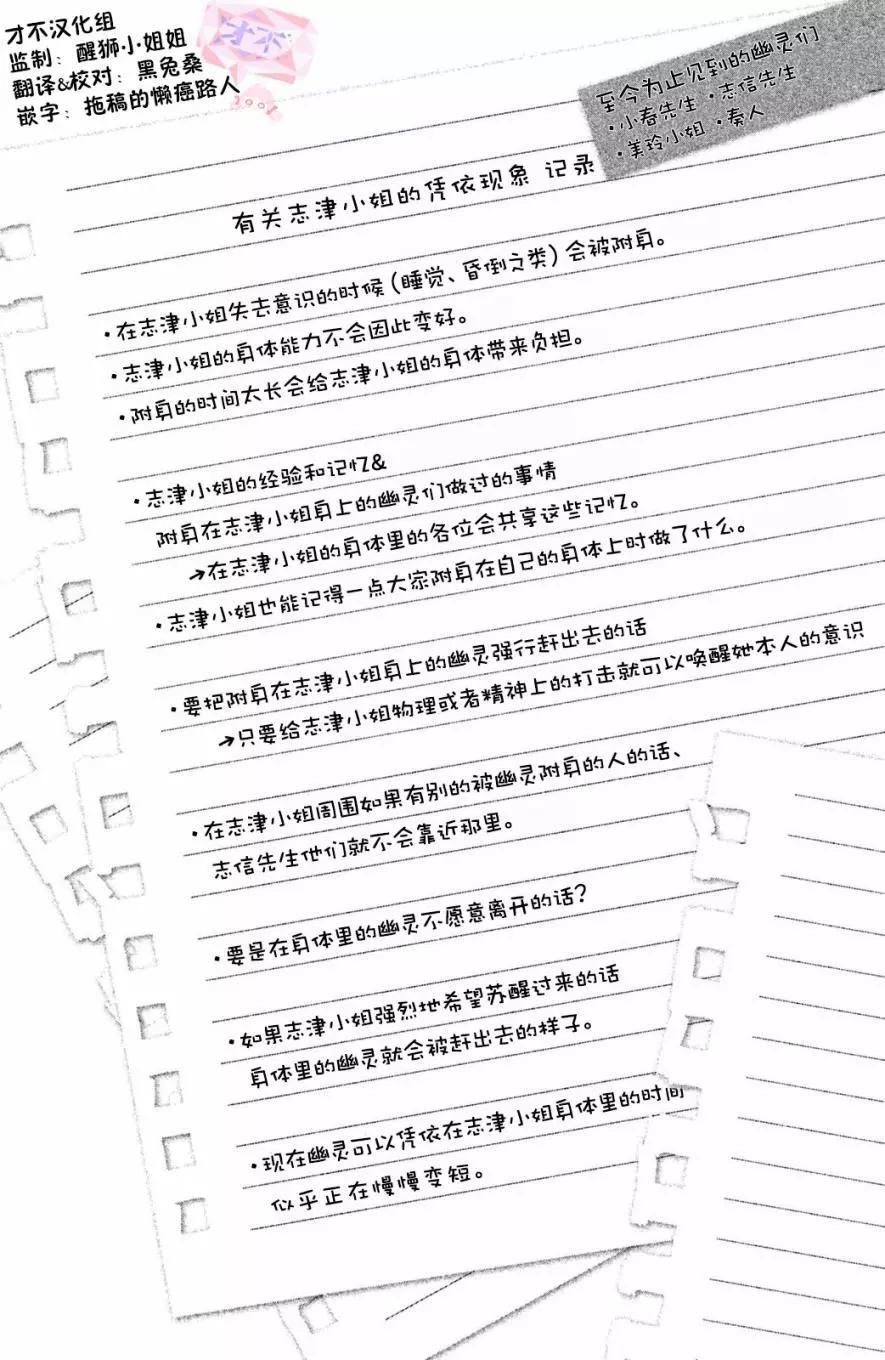 才不汉化组
监制：醒狮小姐姐
翻译&校对：黑兔桑
嵌字：拖稿的懒癌路人
才不
至今为止见到的幽灵们
·小春先生 ·志信先生
·美玲小姐 ·奏人
有关志津小姐的凭依现象 记录
·在志津小姐失去意识的时候（睡觉、昏倒之类）会被附身。
·志津小姐的身体能力不会因此变好。
·附身的时间太长会给志津小姐的身体带来负担。
·志津小姐的经验和记忆&
附身在志津小姐身上的幽灵们做过的事情
→在志津小姐的身体里的各位会共享这些记忆。
·志津小姐也能记得一点大家附身在自己的身体上时做了什么。
·要把附身在志津小姐身上的幽灵强行赶出去的话
→只要给志津小姐物理或者精神上的打击就可以唤醒她本人的意识
·在志津小姐周围如果有别的被幽灵附身的人的话、
志信先生他们就不会靠近那里。
·要是在身体里的幽灵不愿意离开的话？
·如果志津小姐强烈地希望苏醒过来的话
身体里的幽灵就会被赶出去的样子。
·现在幽灵可以凭依在志津小姐身体里的时间
似乎正在慢慢变短。